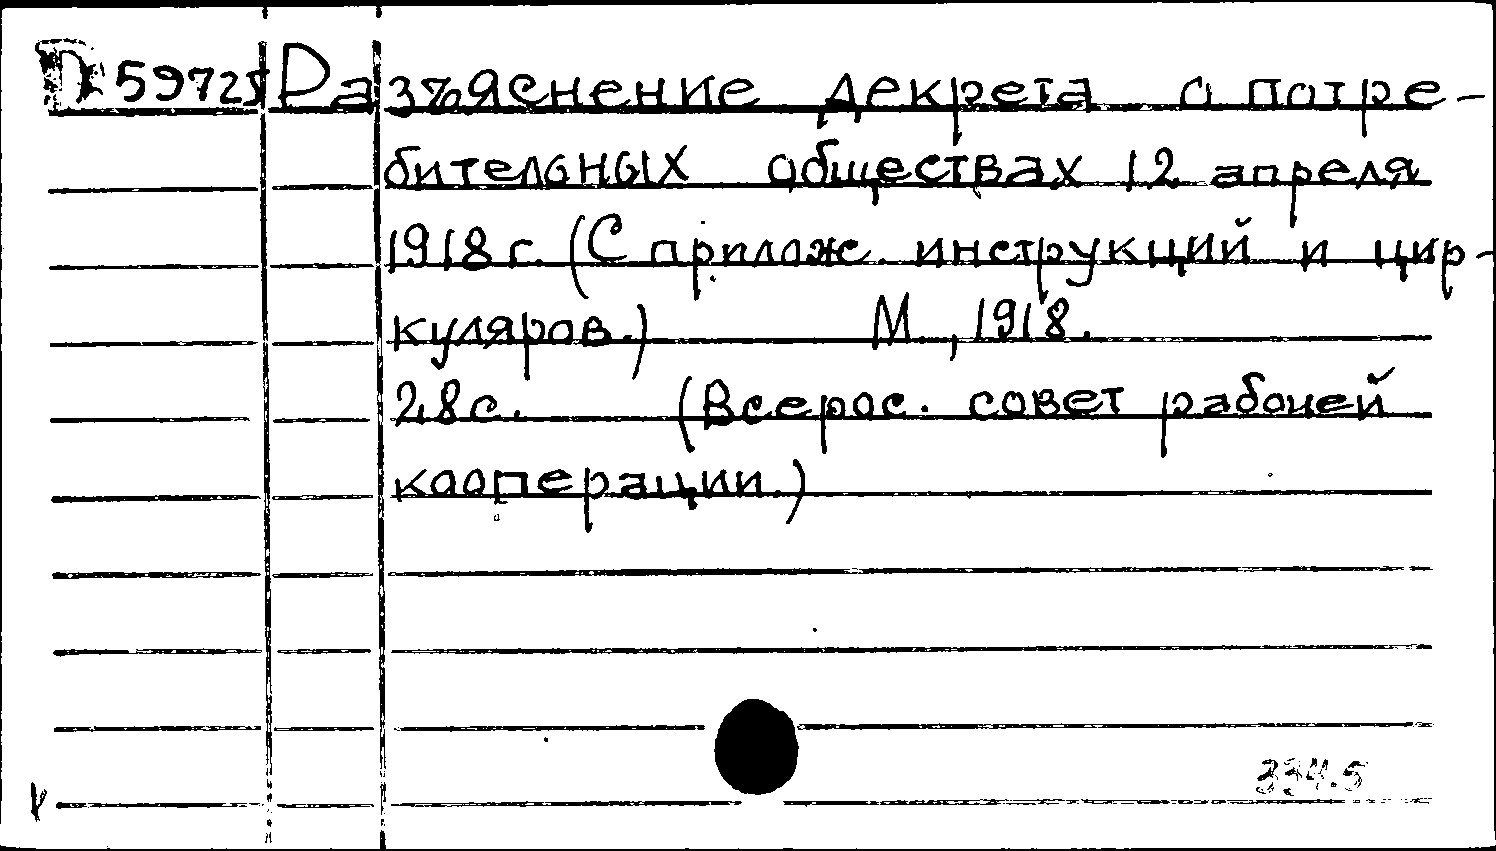 D 59725 Разъяснение декрета о потре-
бительных обществах 12 апреля
1918 г. (С прилож. инструкций и цир-
куляров.) М., 1918.
28 с. (Всерос. совет рабочей
кооперации.)
334.5